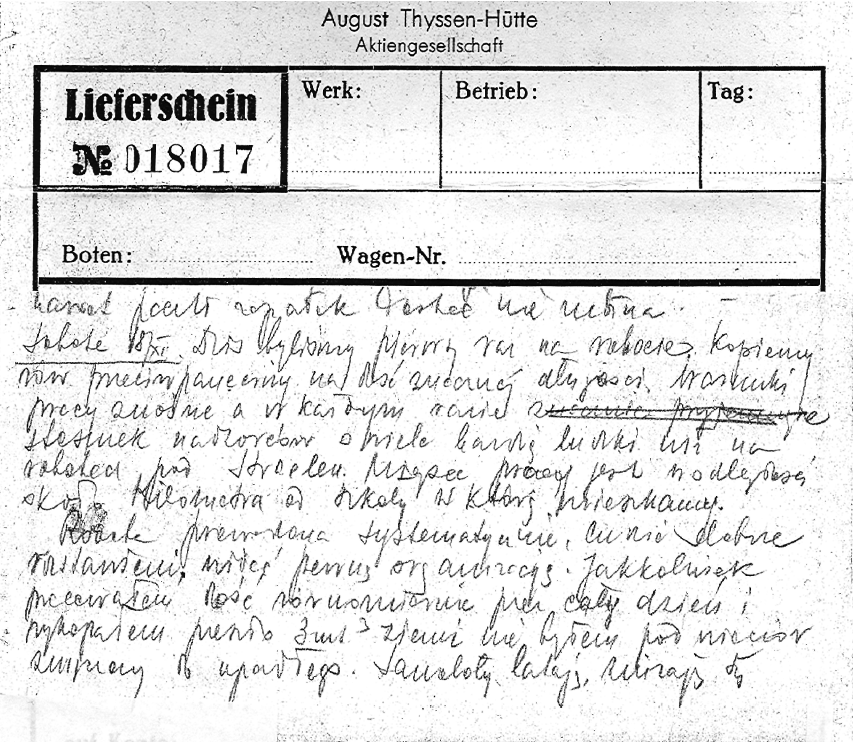 August Thyssen-Hütte
Aktiengesellschaft
Lieferschein
№ 018017
Werk:
Betrieb:
Tag:
Boten:
Wagen-Nr.
nawet pceli zapałek dostać nie można. —
Sobota 18/XI. Dziś byliśmy pierwszy raz na robocie. Kopiemy
rów przeciwpancerny na dość znacznej długości. Warunki
pracy znośne a w każdym razie znacznie przyjemniejsze
stosunek nadzorców o wiele bardziej ludzki niż na
robotach pod Straelen. Miejsce pracy jest w odległości
około kilometra od szkoły w której mieszkamy.
Robota prowadzona systematycznie, ludzie dobrze
rozstawieni, widać pewną organizację. Jakkolwiek
pracowałem dość równomiernie przez cały dzień i
wykopałem prawie 3 mt³ ziemi nie byłem pod wieczór
zmęczony do upadłego. Samoloty latają, zniżają się